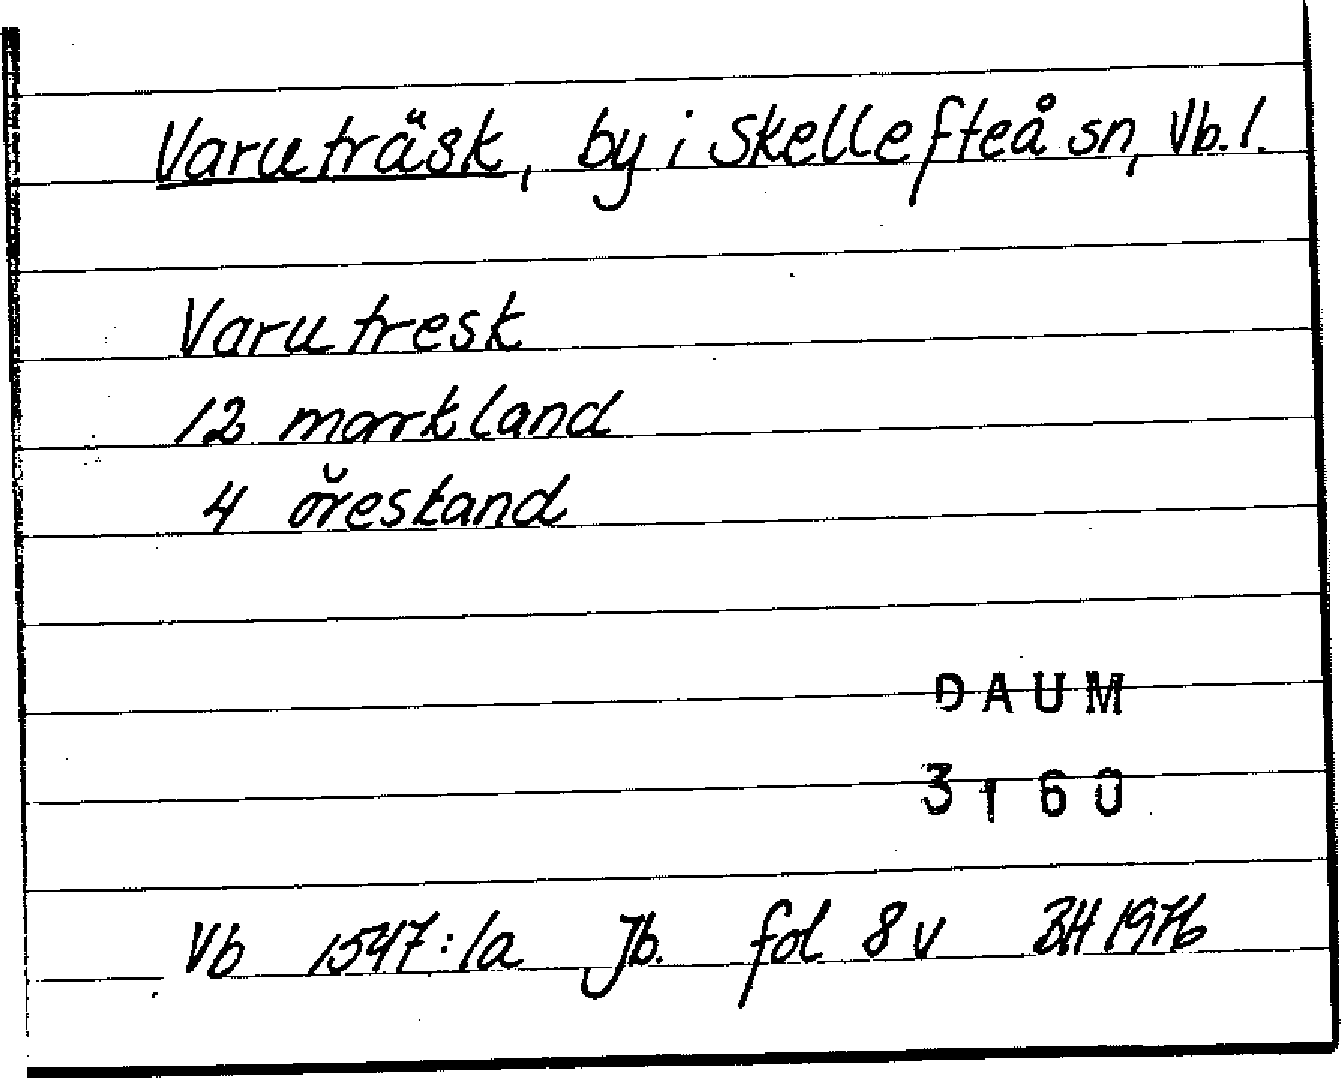 Varuträsk, by i Skellefteå sn, Vb. l.
Varutresk
12 markland
4 öresland
DAUM
3160
Vb 1547:1a Jb. fol 8 v BH 1976